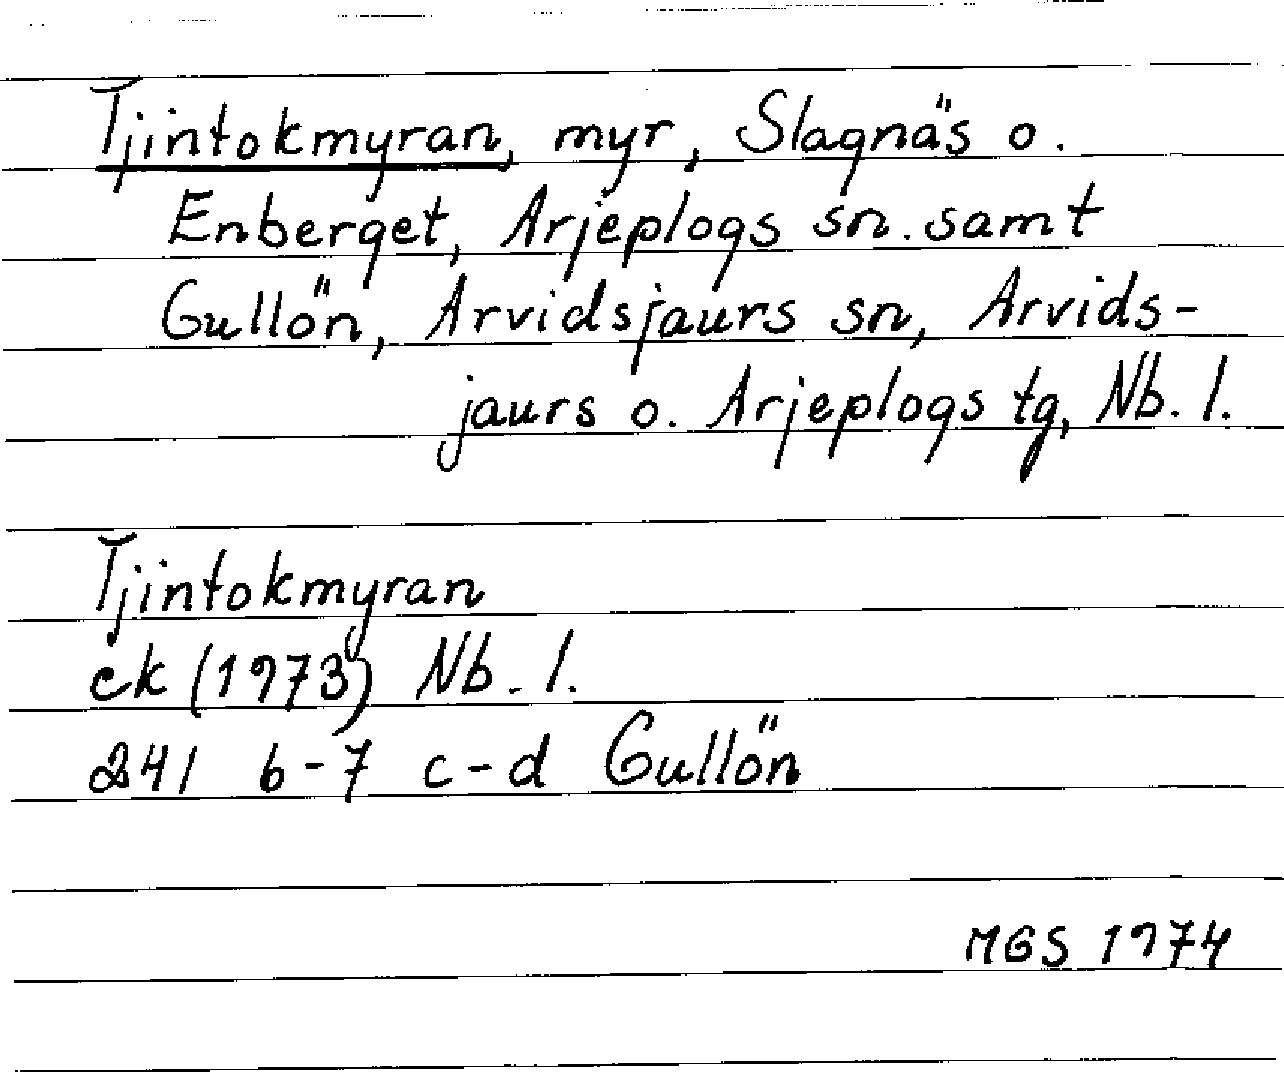 Tjintokmyran, myr, Slagnäs o.
Enberget, Arjeplogs sn. samt
Gullön, Arvidsjaurs sn, Arvids-
jaurs o. Arjeplogs tg, Nb. l.
Tjintokmyran
ek (1973) Nb. l.
241 6-7 c-d Gullön
MGS 1974